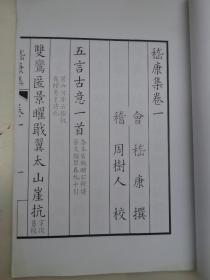 嵇康集卷一
會 嵇康 撰
稽 周樹人 校
五言古意一首
藝文類聚卷九十引
雙鸞匿景曜戢翼太山崖抗
嵇康集 卷一 一